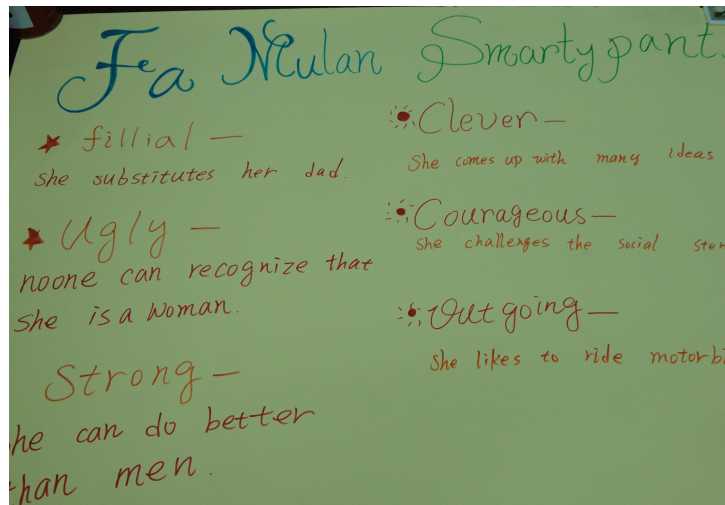 Fa Mulan
fillial —
She substitutes her dad.
Ugly —
noone can recognize that
She is a woman.
Strong —
he can do better
han men.
Smartypant
Clever —
She comes up with many ideas
Courageous —
She challenges the social ster
Outgoing —
She likes to ride motorbi